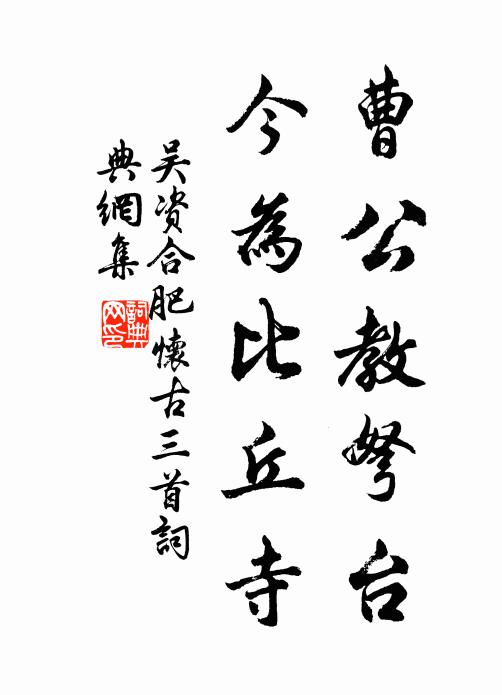 曹公教弩台
今為比丘寺
吴资合肥懷古三首詞
典網集
詞典網印